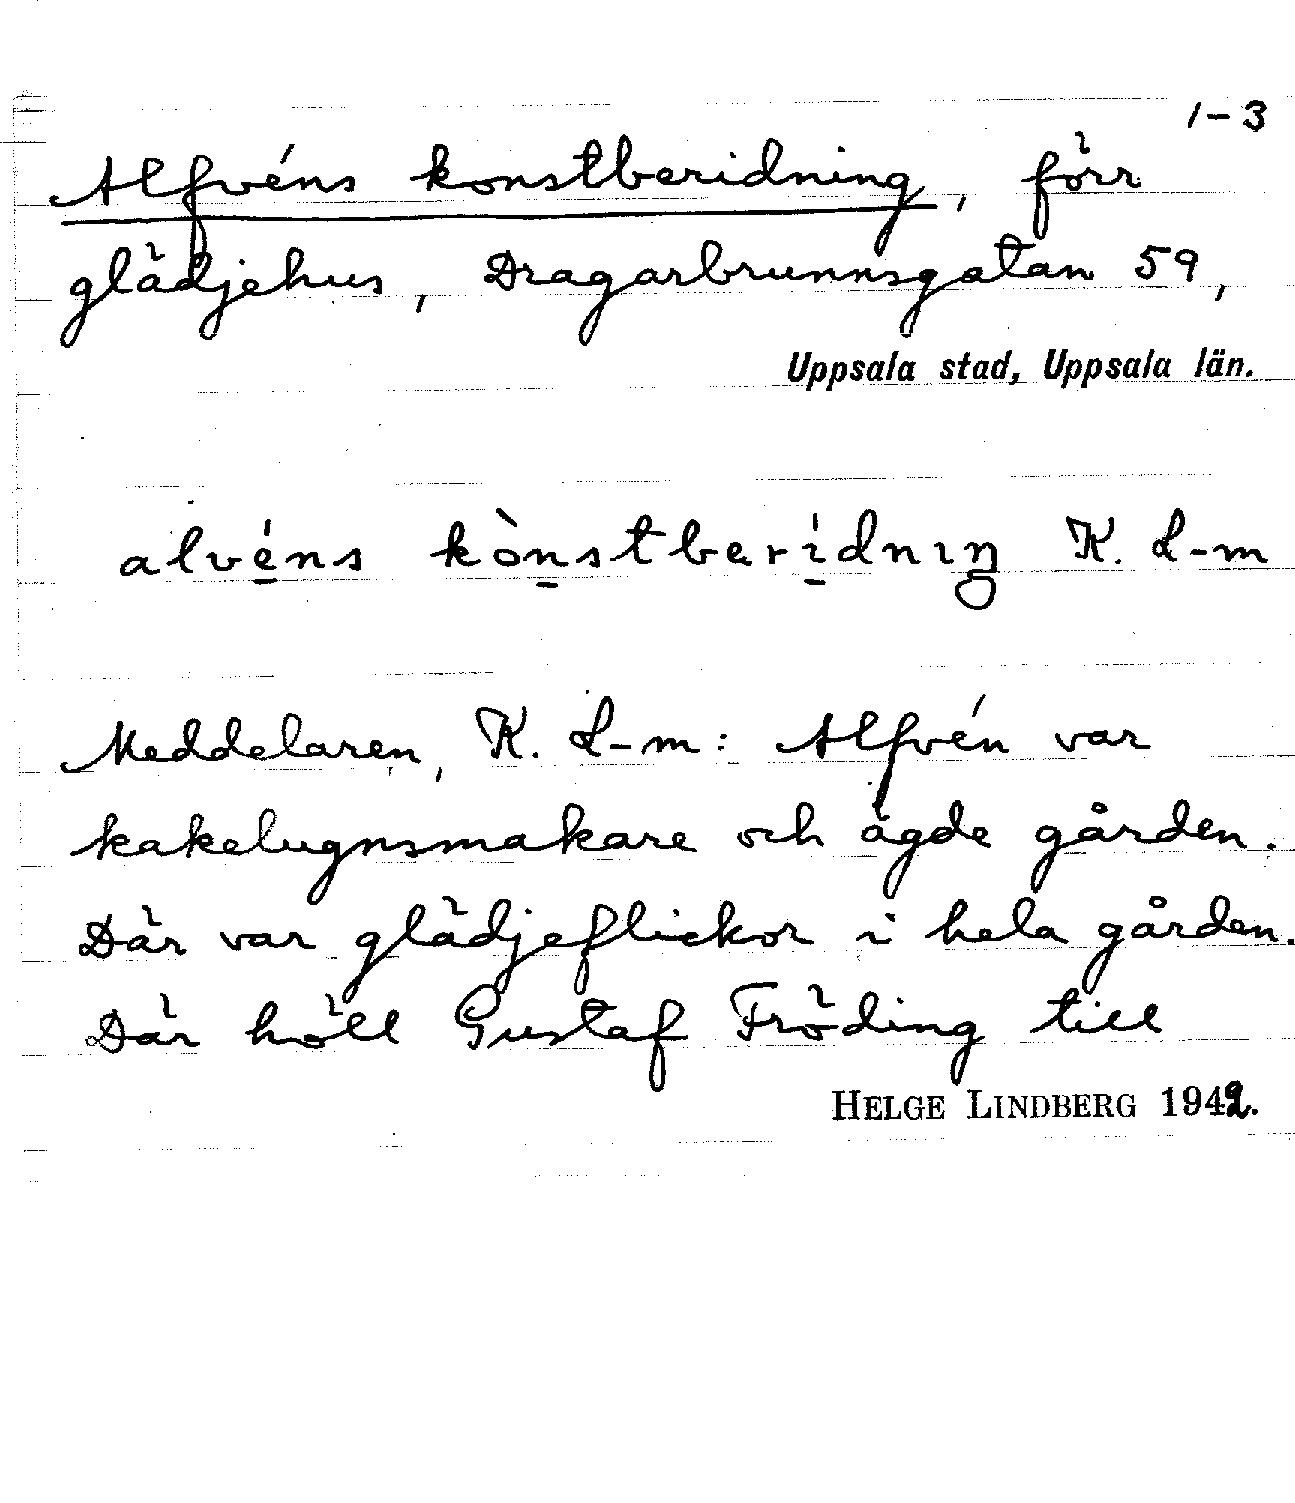 1-3
Alfvéns konstberidning, förr
glädjehus, Dragarbrunnsgatan 59,
Uppsala stad, Uppsala län.
alvéns kònstberídnıŋ K. L-m
Meddelaren, K. L-m: Alfvén var
kakelugnsmakare och ägde gården.
Där var glädjeflickor i hela gården.
Där höll Gustaf Fröding till
HELGE LINDBERG 1942.